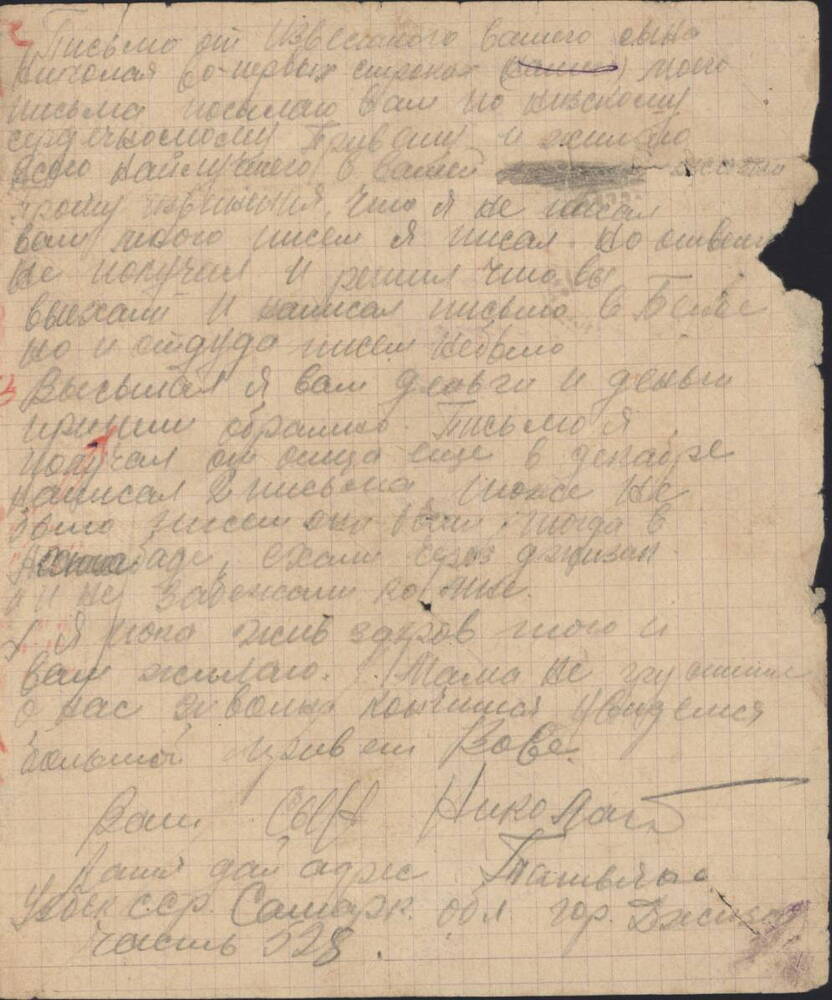 Письмо от известного вашего сына
Николая во-первых строках моего
письма посылаю вам по низскому
сердечьномому Привету и жилаю
всего найлучшего в вашей жизни
прошу извинения, что я не писал
вам много писем я писал но ответа
не получал и решил что вы
выехали и написал письмо в
но и отдуда писем небыло
Высылал я вам деньги и деньги
пришли обратно. Письмо я
получал от отца еще в декабре
написал 2 письма тоже не
было писем они были тогда в
ехали через джизак
и не забежали ко мне.
Я пока жив здоров того и
вам жилаю. Мама не грустите
о нас война кончится увидемся
большой привет Вове.
Ваш Сын Николай
дай адрес Татьяны
Узбек ССР. Самарк. обл гор. Джизак
часть 528.